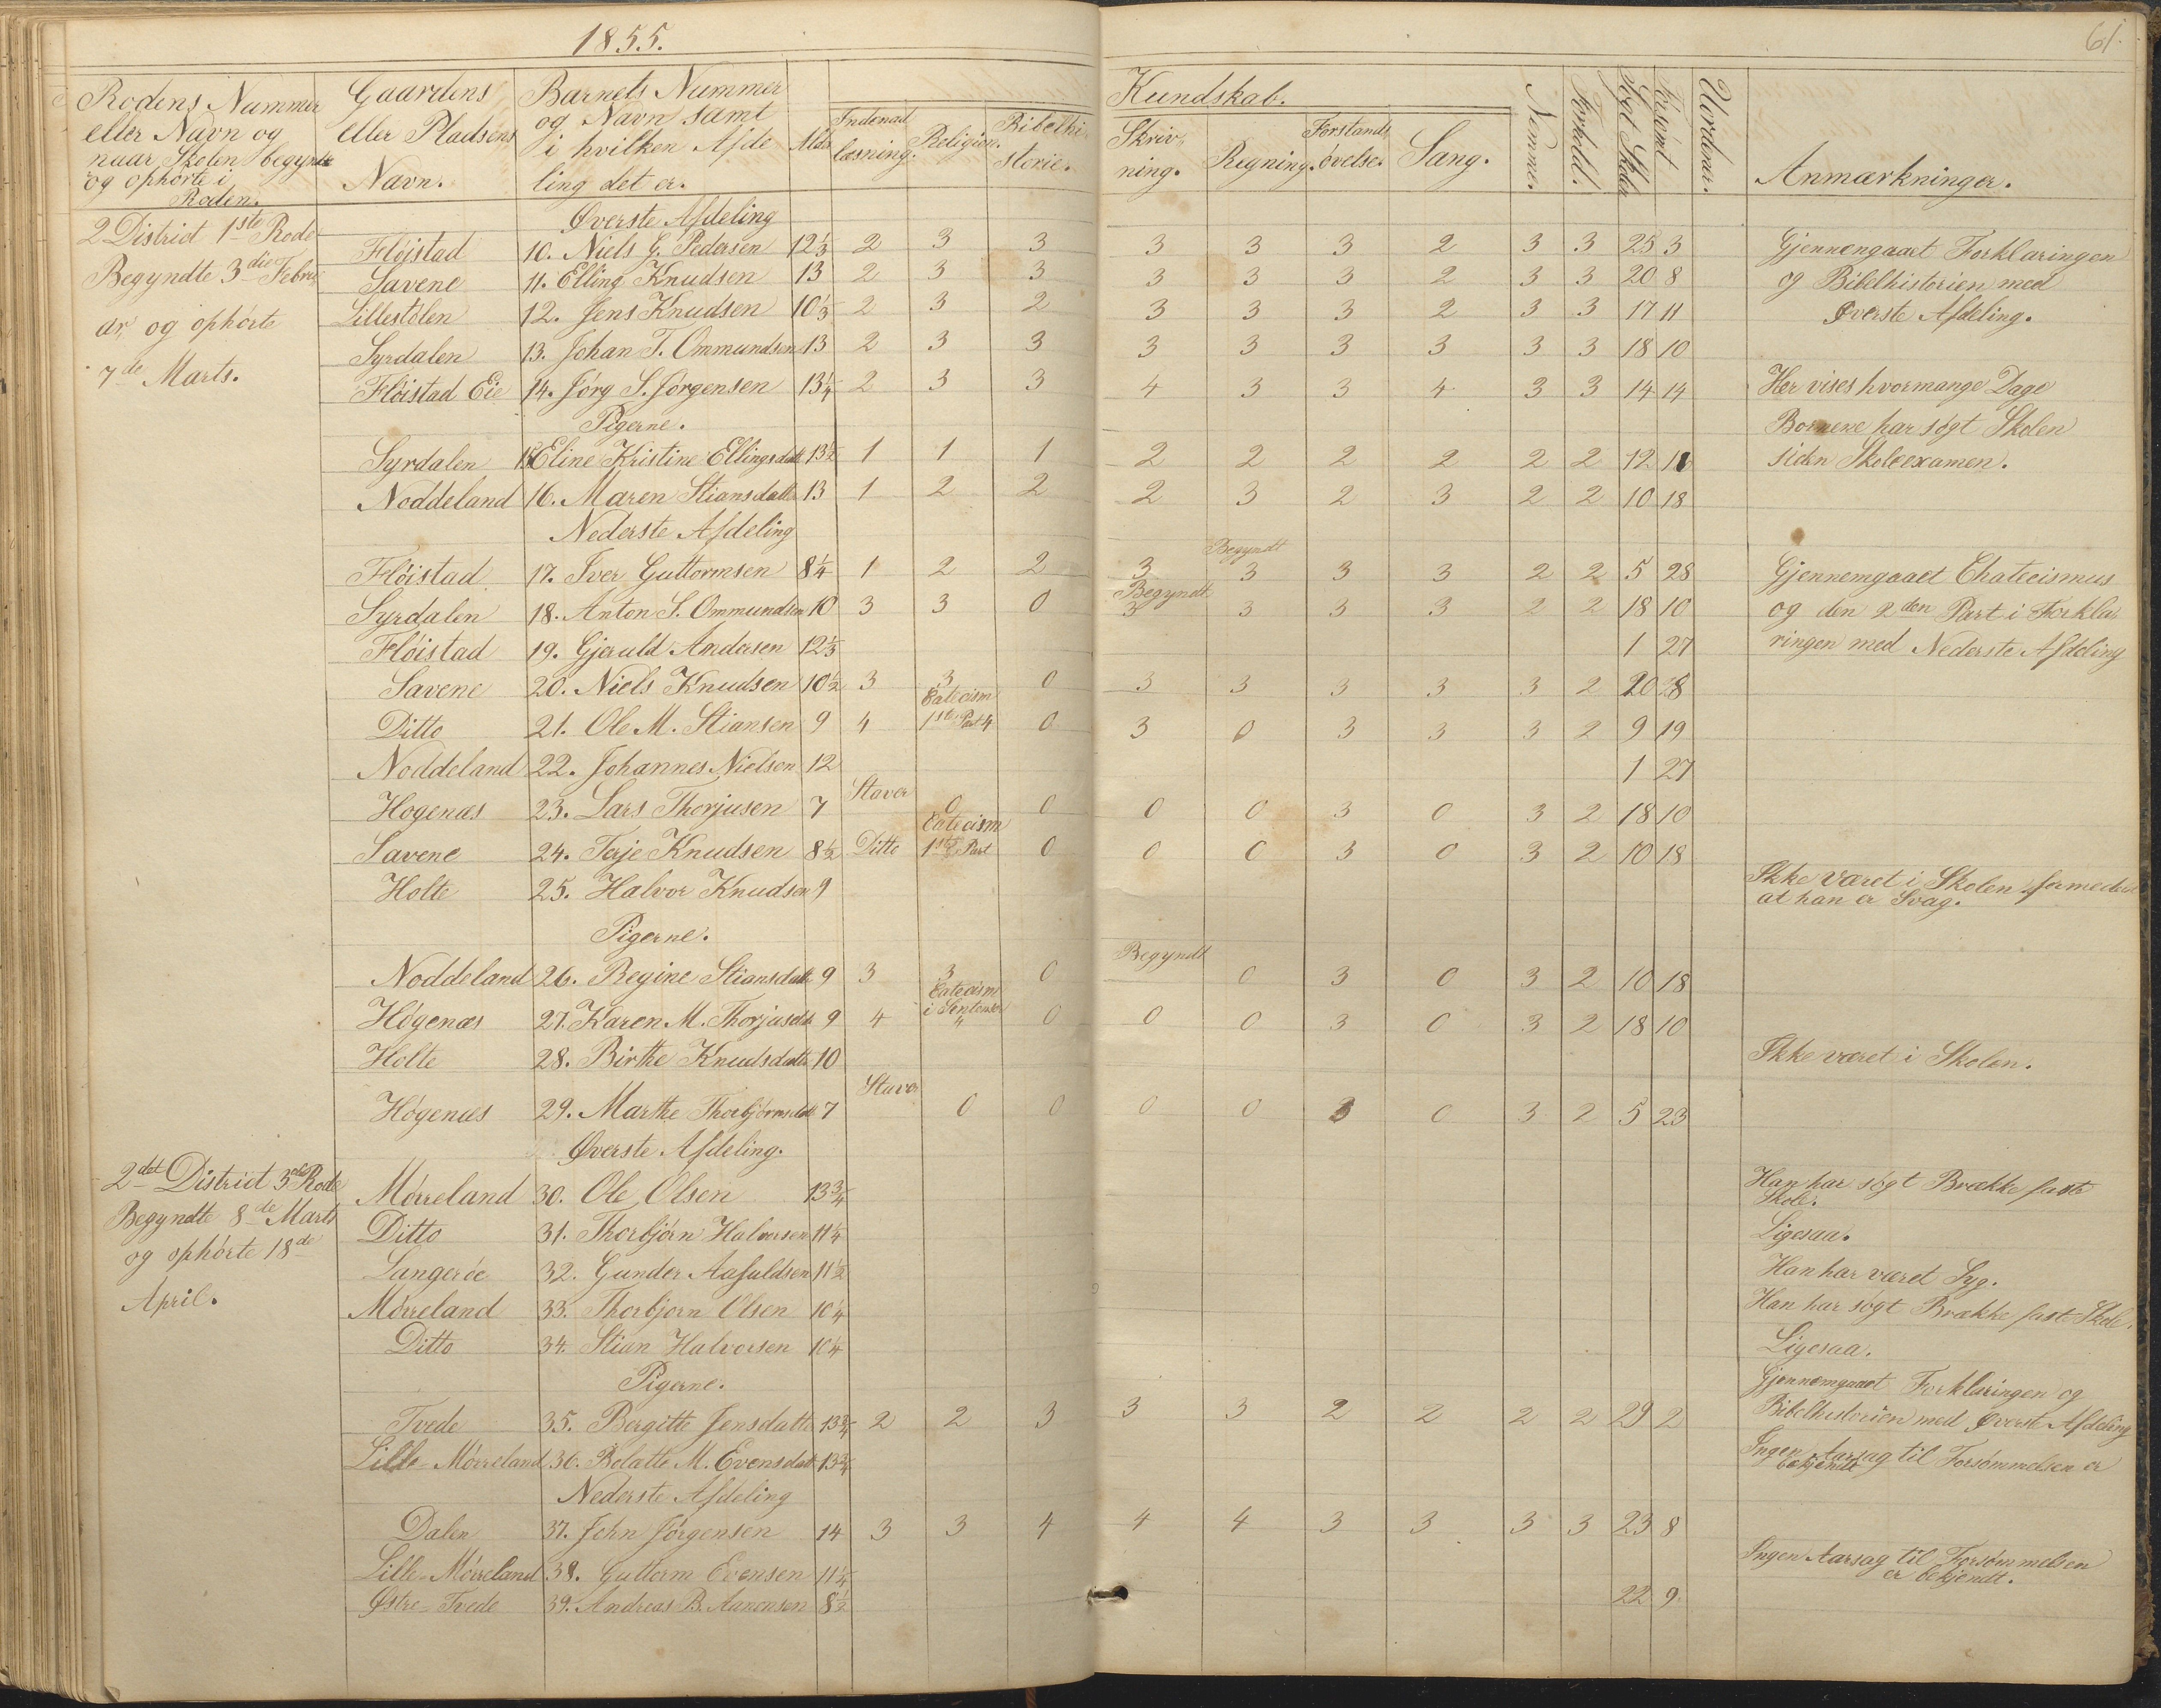 1855.
61.
Rodens Nummer eller Navn og naar Skolen begyndte og ophørte i Roden.
Gaardens eller Pladsens Navn.
Barnets Nummer og Navn samt i hvilken Afdeling det er.
Alder
Kundskab.
Indenad læsning.
Religion.
Bibelhistorie.
Skrivning.
Regning.
Forstands øvelse.
Sang.
Nemme.
Forhold.
Søgt Skolen
Forsømt
Uordener.
Anmærkninger.
2 District 1ste Rode
Begyndte 3die Februar
og ophørte
7de Marts.
Øverste Afdeling
Fløjstad 10. Niels G. Pedersen 12⅓ 2 3 3 3 3 3 2 3 3 25 3 Gjennemgaaet Forklaringen
Savene 11. Elling Knudsen 13 2 3 3 3 3 3 2 3 3 20 8 og Bibelhistorien med
Lillestølen 12. Jens Knudsen 10⅓ 2 3 2 3 3 3 2 3 3 17 11 Øverste Afdeling.
Syrdalen 13. Johan T. Ommundsen 13 2 3 3 3 3 3 3 3 3 18 10
Fløistad Eie 14. Jørg S. Jørgensen 13¼ 2 3 3 4 3 3 4 3 3 14 14 Her vises hvormange Dage
Pigerne. Børnene har søgt Skolen
Syrdalen 15 Eline Kristine Ellingsdatt 13½ 1 1 1 2 2 2 2 2 2 12 16 siden Skoleexamen.
Noddeland 16. Maren Stiansdatt 13 1 2 2 2 3 2 3 2 2 10 18
Nederste Afdeling
Begyndt
Fløistad 17. Iver Guttormsen 8¼ 1 2 2 3 3 3 3 2 2 5 28 Gjennemgaaet Chatecismus
Begyndt
Syrdalen 18. Anton S. Ommundsen 10 3 3 0 3 3 3 3 2 2 18 10 og den 2den Part i Forkla-
Fløistad 19. Gjeruld Andersen 12⅓ 1 27 ringen med Nederste Afdeling
Savene 20. Niels Knudsen 10½ 3 3 0 3 3 3 3 3 2 20 28
Ditto 21. Ole M. Stiansen 9 4 Catecism 1ste Part 4 0 3 0 3 3 3 2 9 19
Noddeland 22. Johannes Nielsen 12 1 27
Hogenæs 23. Lars Thorjusen 7 Staver 0 0 0 0 3 0 3 2 18 10
Savene 24. Terje Knudsen 8½ Ditto Catecism 1ste Part 0 0 0 3 0 3 2 10 18
Holte 25. Halvor Knudsen 9 Ikke været i Skolen formedelst
at han er Svag.
Pigerne.
Noddeland 26. Regine Stiansdatt 9 3 3 0 Begyndt 0 3 0 3 2 10 18
Høgenæs 27. Karen M. Thorjusdatt 9 4 Catecism i Sentenser 4 0 0 0 3 0 3 2 18 10
Holte 28. Birthe Knudsdatte 10 Ikke været i Skolen.
Høgenæs 29. Marthe Thorbjørnsdatt 7 Staver 0 0 0 0 3 0 3 2 5 23
Øverste Afdeling.
2det District 3die Rode
Begyndte 8de Marts
og ophørte 18de
April.
Mørreland 30. Ole Olsen 13¾ Han har søgt Brække faste
Skole.
Ditto 31. Thorbjørn Halvorsen 11½ Ligesaa.
Langerøe 32. Gunder Aafuldsen 11½ Han har været Syg.
Mørreland 33. Thorbjørn Olsen 10¼ Han har søgt Brække fast-Skole.
Ditto 34. Stian Halvorsen 10¼ Ligesaa.
Pigerne. Gjennemgaaet Forklaringen og
Tvede 35. Bergitte Jensdatte 13¾ 2 2 3 3 3 2 2 2 2 29 2 Bibelhistorien med Øverste Afdeling
Lille-Mørreland 36. Bolatte M. Evensdatt 13¾ Ingen Aarsag til Forsømmelsen er
bekjendt
Nederste Afdeling
Dalen 37. John Jørgensen 14 3 3 4 4 4 3 3 3 3 23 8
Lille-Mørreland 38. Guttorm Evensen 11¼ Ingen Aarsag til Forsømmelsen
er bekjendt.
Østre-Tvede 39. Andreas B. Aanonsen 8½ 22 9